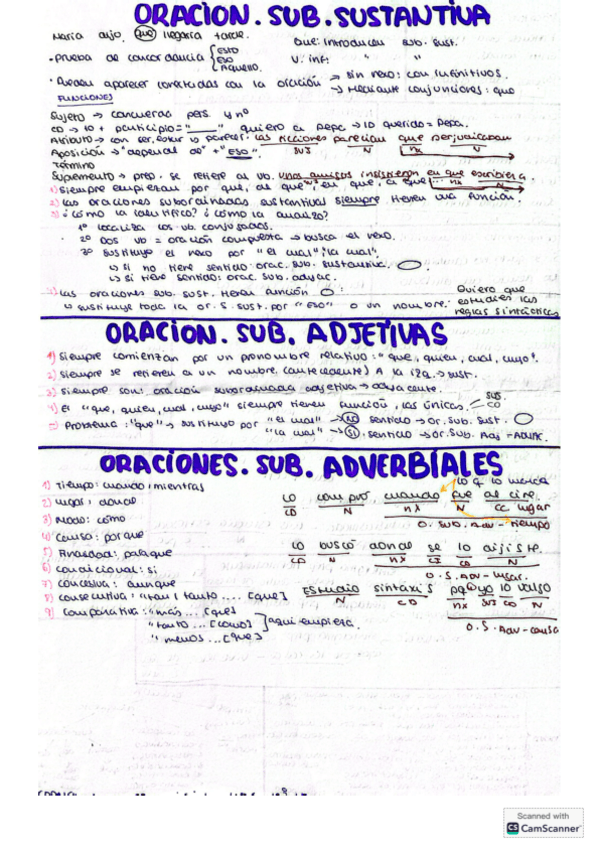 ORACIÓN. SUB. SUSTANTIVA
María dijo que llegaría tarde.
Que: introducen sub. sust.
· Prueba de concordancia { ESTO
ESO
Aquello.
V. inf: " "
· Pueden aparecer conectadas con la oración → sin nexo: con infinitivos.
→ Mediante conjunciones: que
FUNCIONES
Sujeto → concuerda pers. y nº
CD → lo + participio = "____" quiero a Pepa → lo querido = Pepa.
Atributo → con ser, estar o parecer. Las ficciones parecían que perjudicaban
SUJ N nx N
Aposición → "depende de" + "ESO"
Término
Suplemento → prep. se refiere al vb. Unos amigos insistieron en que escribiera.
nx N
1) Siempre empiezan por que, de que, en que, a que...
2) Las oraciones subordinadas sustantivas siempre tienen una función.
3) ¿Cómo la identifico? ¿Cómo la analizo?
1º localiza los vb. conjugados.
2º Dos vb = oración compuesta → busca el nexo.
3º Sustituyo el nexo por "el cual", "la cual".
↳ si no tiene sentido: orac. sub. sustantiva.
↳ si tiene sentido: orac. sub. adyac.
Las oraciones sub. sust. tienen función :
↳ sustituye toda la or. s. sust. por "ESO" o un nombre.
Quiero que
estudies las
reglas sintácticas
ORACIÓN. SUB. ADJETIVAS
1) Siempre comienzan por un pronombre relativo: "que, quien, cual, cuyo".
2) Siempre se refieren a un nombre (antecedente) A la izq. → sust.
3) Siempre son: oración subordinada adjetiva → adyacente.
4) El "que, quien, cual, cuyo" siempre tienen función, las únicas. SUJ
CD
5) Problema: "que" → sustituyo por "el cual" → NO sentido → Or. Sub. Sust.
"la cual" → SÍ sentido → Or. Sub. Adj - Adyac.
ORACIONES. SUB. ADVERBIALES
1) Tiempo: cuando, mientras
2) Lugar: donde
3) Modo: cómo
4) Causa: porque
5) Finalidad: para que
6) Condicional: si
7) Concesiva: aunque
8) Consecutiva: "tan / tanto ... [que]
9) Comparativa: "más ... [que]
"tanto ... [como] } aquí empieza.
"menos ... [que]
Lo compró cuando fue al cine.
CD N nx N CC lugar
O. Sub. Adv - tiempo
Lo buscó donde se lo dijiste.
CD N nx CI CD N
O. S. Adv - lugar.
Estudio sintaxis pq yo lo valgo
N CD nx SUJ CD N
O. S. Adv - causa
Scanned with
CS CamScanner